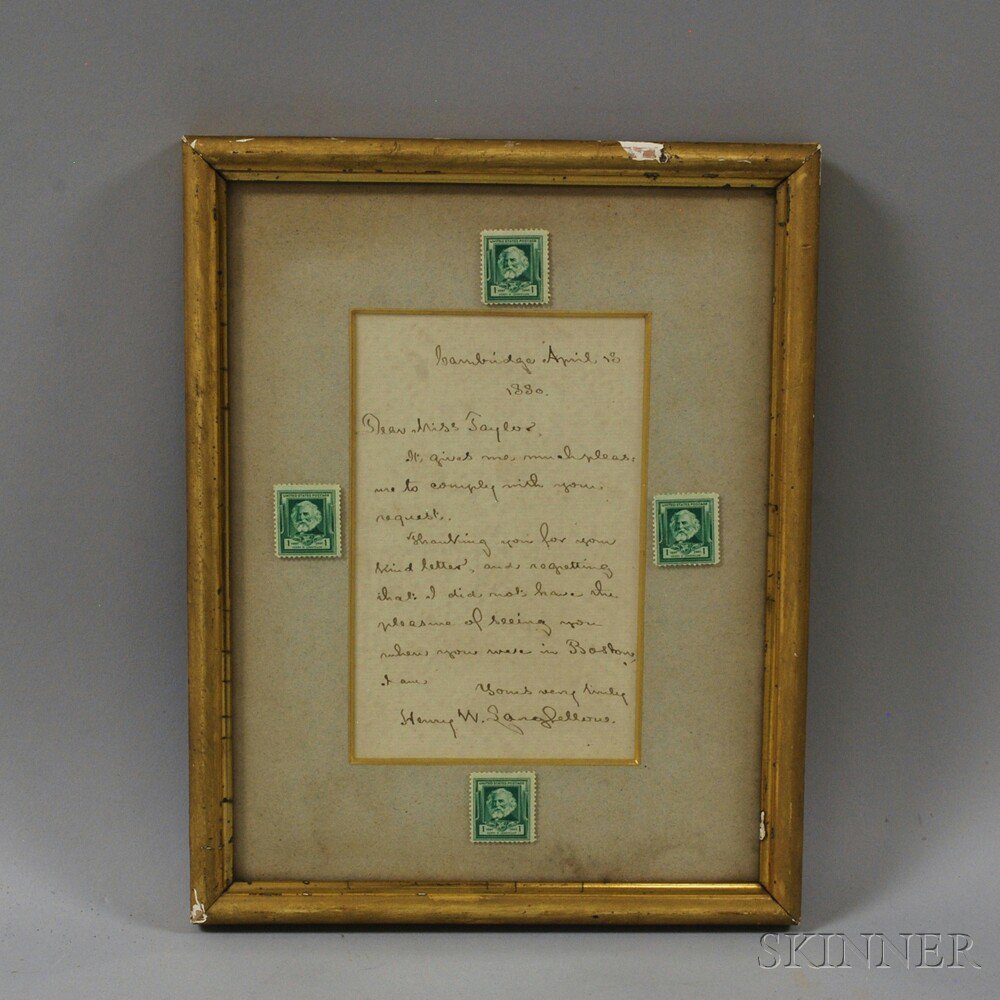 UNITED STATES POSTAGE
1 1
Cambridge April 13
1880.
Dear Miss Taylor,
It gives me much pleas=
ure to comply with your
request.
Thanking you for your
kind letter, and regretting
that I did not have the
pleasure of seeing you
when you were in Boston,
I am
Yours very truly
Henry W. Longfellow.
UNITED STATES POSTAGE
1 1
UNITED STATES POSTAGE
1 1
UNITED STATES POSTAGE
1 1
SKINNER